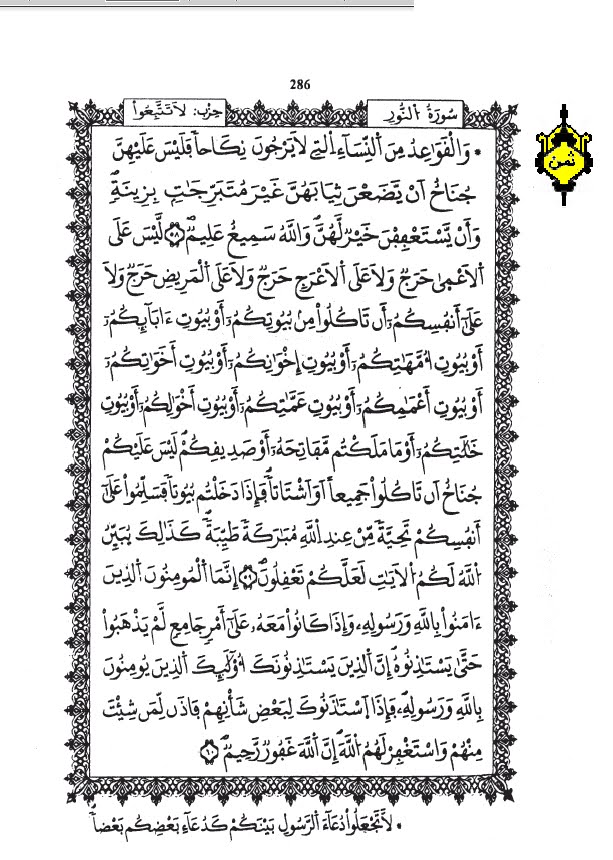 286
سُورَةُ اَ۬لنُّورِ
حِزْب: لَا تَتَّبِعُواْ
ثمن
• وَالْقَوَٰعِدُ مِنَ اَ۬لنِّسَآءِ اِ۬لتِے لَا يَرْجُونَ نِكَاحاٗ فَلَيْسَ عَلَيْهِنَّ
جُنَاحٌ اَنْ يَّضَعْنَ ثِيَابَهُنَّ غَيْرَ مُتَبَرِّجَٰتِۢ بِزِينَةٖۖ
وَأَنْ يَّسْتَعْفِفْنَ خَيْرٞ لَّهُنَّۖ وَاللَّهُ سَمِيعٌ عَلِيمٞۖ ٥٨ لَّيْسَ عَلَى
اَ۬لَاعْم۪ىٰ حَرَجٞ وَلَا عَلَى اَ۬لَاعْرَجِ حَرَجٞ وَلَا عَلَى اَ۬لْمَرِيضِ حَرَجٞ وَلَا
عَلَىٰٓ أَنفُسِكُمُۥٓ أَن تَاكُلُواْ مِنۢ بُيُوتِكُمُۥٓ أَوْ بُيُوتِ ءَابَآئِكُمُۥٓ
أَوْ بُيُوتِ أُمَّهَٰتِكُمُۥٓ أَوْ بُيُوتِ إِخْوَٰنِكُمُۥٓ أَوْ بُيُوتِ أَخَوَٰتِكُمُۥٓ
أَوْ بُيُوتِ أَعْمَٰمِكُمُۥٓ أَوْ بُيُوتِ عَمَّٰتِكُمُۥٓ أَوْ بُيُوتِ أَخْوَٰلِكُمُۥٓ أَوْ بُيُوتِ
خَٰلَٰتِكُمُۥٓ أَوْ مَا مَلَكْتُم مَّفَاتِحَهُۥٓ أَوْ صَدِيقِكُمْۖ لَيْسَ عَلَيْكُمْ
جُنَاحٌ اَن تَاكُلُواْ جَمِيعاً اَوَ اَشْتَاتاٗۖ فَإِذَا دَخَلْتُم بُيُوتاٗ فَسَلِّمُواْ عَلَىٰٓ
أَنفُسِكُمْ تَحِيَّةٗ مِّنْ عِندِ اِ۬للَّهِ مُبَٰرَكَةٗ طَيِّبَةٗۖ كَذَٰلِكَ يُبَيِّنُ
اُ۬للَّهُ لَكُمُ اُ۬لَايَٰتِ لَعَلَّكُمْ تَعْقِلُونَۖ ٥٩ إِنَّمَا اَ۬لْمُومِنُونَ اَ۬لذِينَ
ءَامَنُواْ بِاللَّهِ وَرَسُولِهِۦ وَإِذَا كَانُواْ مَعَهُۥ عَلَىٰٓ أَمْرٖ جَامِعٖ لَّمْ يَذْهَبُواْ
حَتَّىٰ يَسْتَٰذِنُوهُۖ إِنَّ اَ۬لذِينَ يَسْتَٰذِنُونَكَ أُوْلَٰٓئِكَ اَ۬لذِينَ يُومِنُونَ
بِاللَّهِ وَرَسُولِهِۦۖ فَإِذَا اَ۪سْتَٰذَنُوكَ لِبَعْضِ شَأْنِهِمْ فَاذَن لِّمَن شِئْتَ
مِنْهُمْ وَاسْتَغْفِرْ لَهُمُ اُ۬للَّهَۖ إِنَّ اَ۬للَّهَ غَفُورٞ رَّحِيمٞۖ ٦٠
• لَّا تَجْعَلُواْ دُعَآءَ اَ۬لرَّسُولِ بَيْنَكُمْ كَدُعَآءِ بَعْضِكُم بَعْضاٗۖ